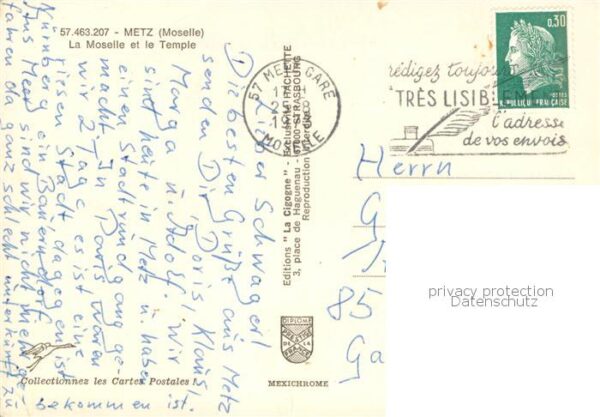 57.463.207 - METZ (Moselle)
La Moselle et le Temple
Lieber Schwager!
Die besten Grüße aus Metz
senden Dir Doris, Klaus,
Marga u. Adolf. Wir
sind heute in Metz u. haben
einen Stadtrundgang ge-
macht. In Paris waren
wir 2 Tage, es ist eine
riesen Stadt dagegen ist
Nürnberg ein Bauerndorf.
Ans Meer sind wir nicht mehr ge-
fahren da ganz schlecht Unterkunft zu
bekommen ist.
Editions "La Cigogne" - Exclusivité HACHETTE
3, place de Haguenau - 67000 STRASBOURG
Reproduction interdite
57 METZ GARE
MOSELLE
rédigez toujours
TRÈS LISIBLEMENT
l'adresse
de vos envois
0,30
POSTES
REPUBLIQUE FRANÇAISE
Herrn
G
85
Ga
privacy protection
Datenschutz
Collectionnez les Cartes Postales !
MEXICHROME